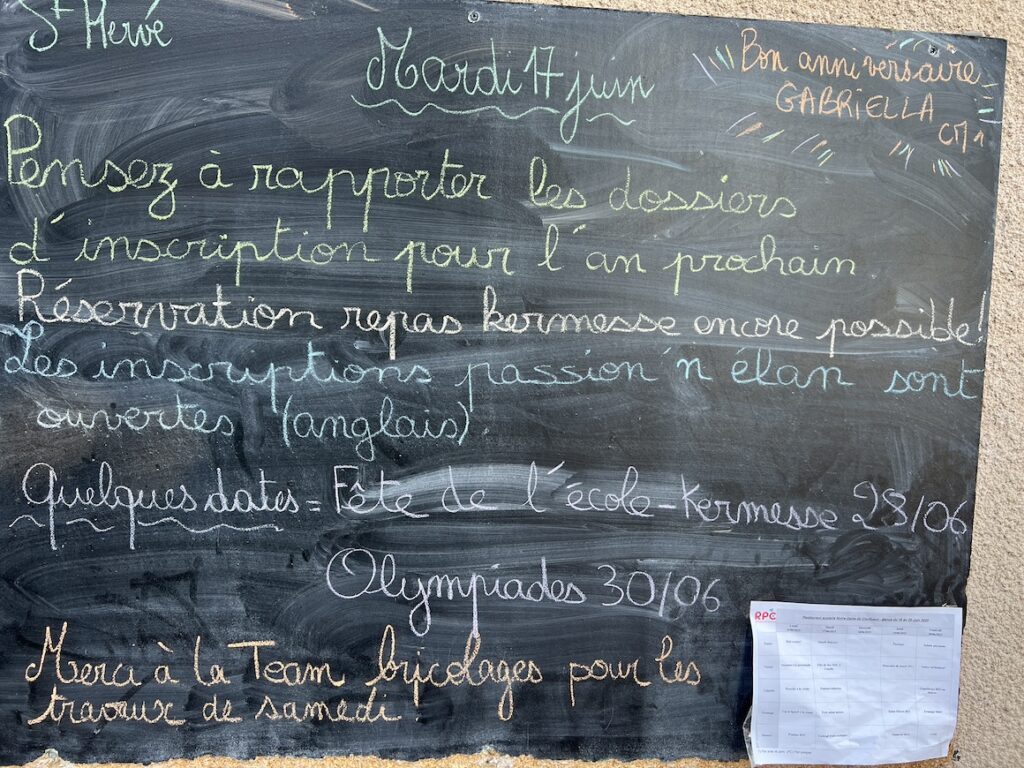 St Hervé
Mardi 17 juin
Bon anniversaire
GABRIELLA
CM1
Pensez à rapporter les dossiers
d'inscription pour l'an prochain
Réservation repas kermesse encore possible!
Les inscriptions passion'n élan sont
ouvertes (anglais).
Quelques dates = Fête de l'école - Kermesse 28/06
Olympiades 30/06
Merci à la Team bricolages pour les
travaux de samedi!
RPC